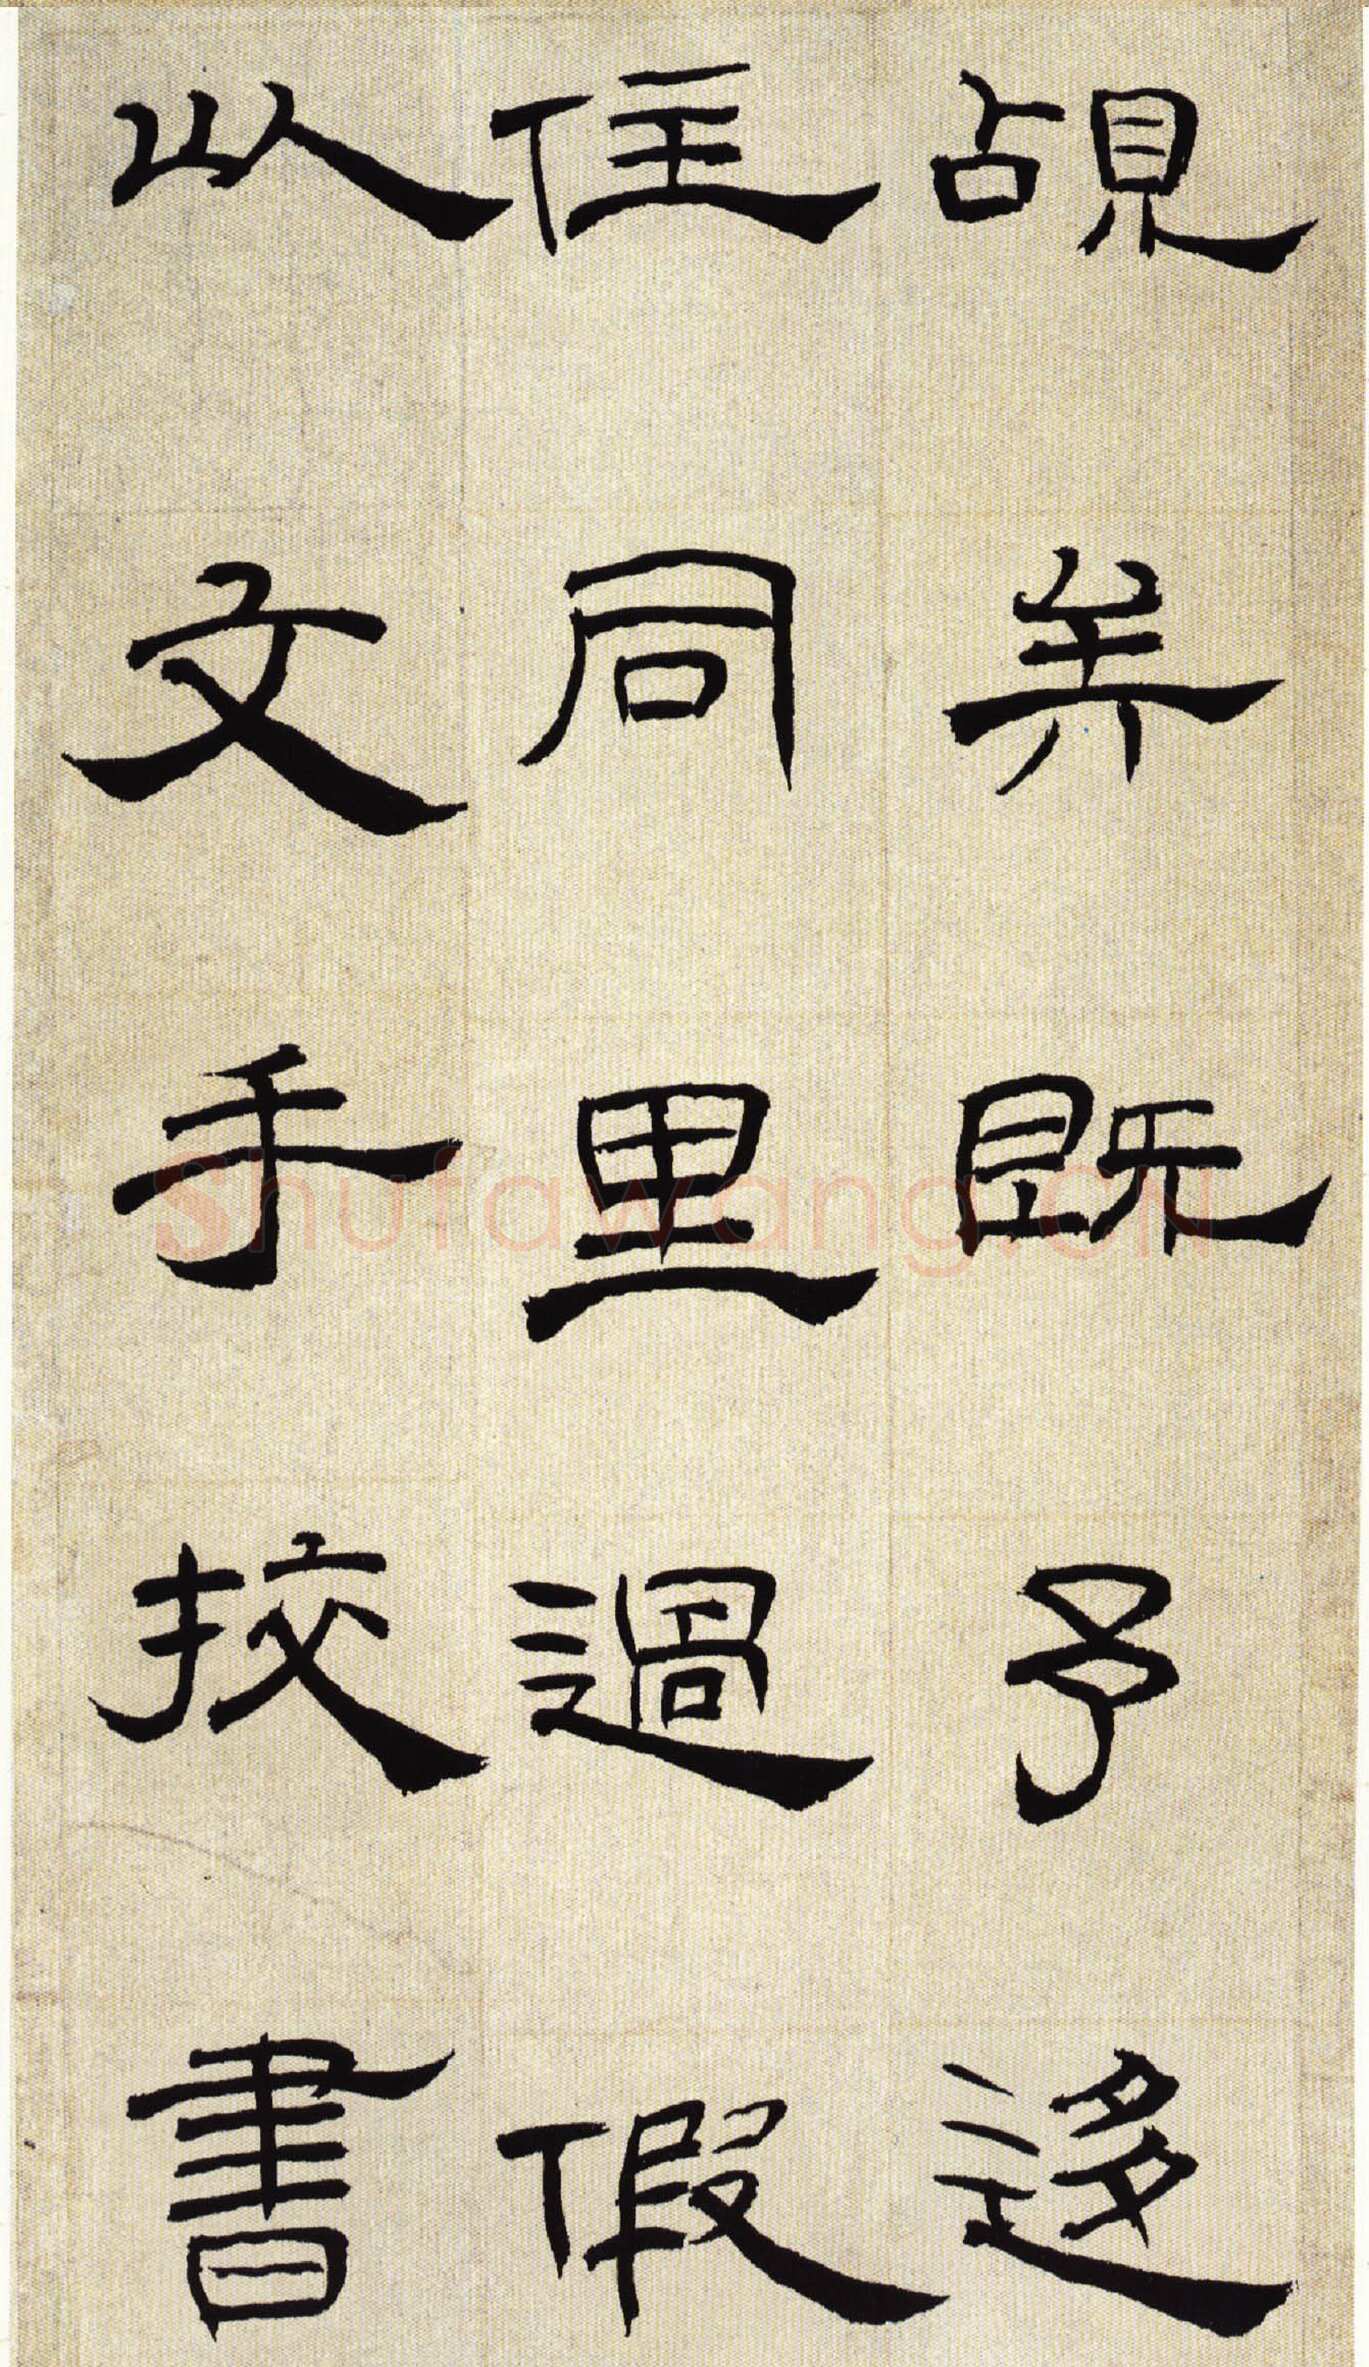 覘矣既予迻
住同里過假
以文手挍書
Shufawang.CN